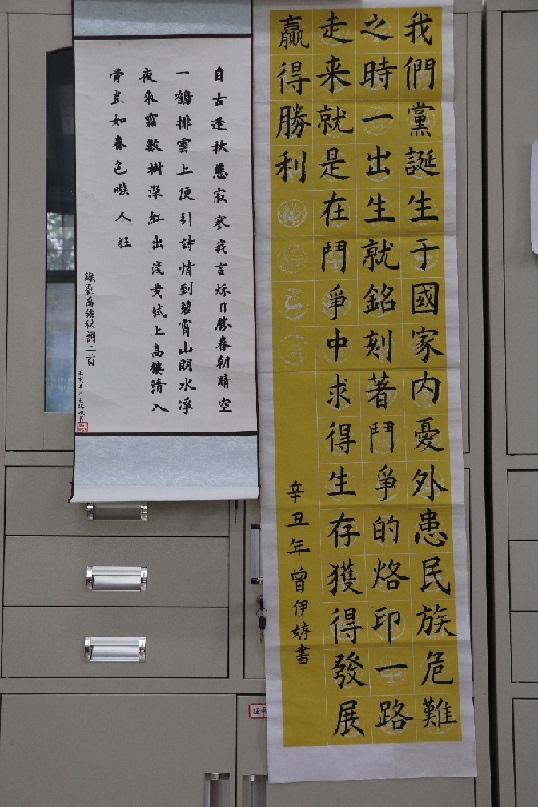 我們黨誕生于國家內憂外患民族危難
之時一出生就銘刻著鬥爭的烙印一路
走來就是在鬥爭中求得生存獲得發展
贏得勝利
辛丑年曾伊婷書
自古逢秋悲寂寥我言秋日勝春朝晴空
一鶴排雲上便引詩情到碧霄山明水淨
夜來霜數樹深紅出淺黃試上高樓清入
骨豈如春色嗾人狂
錄劉禹錫秋詞二首